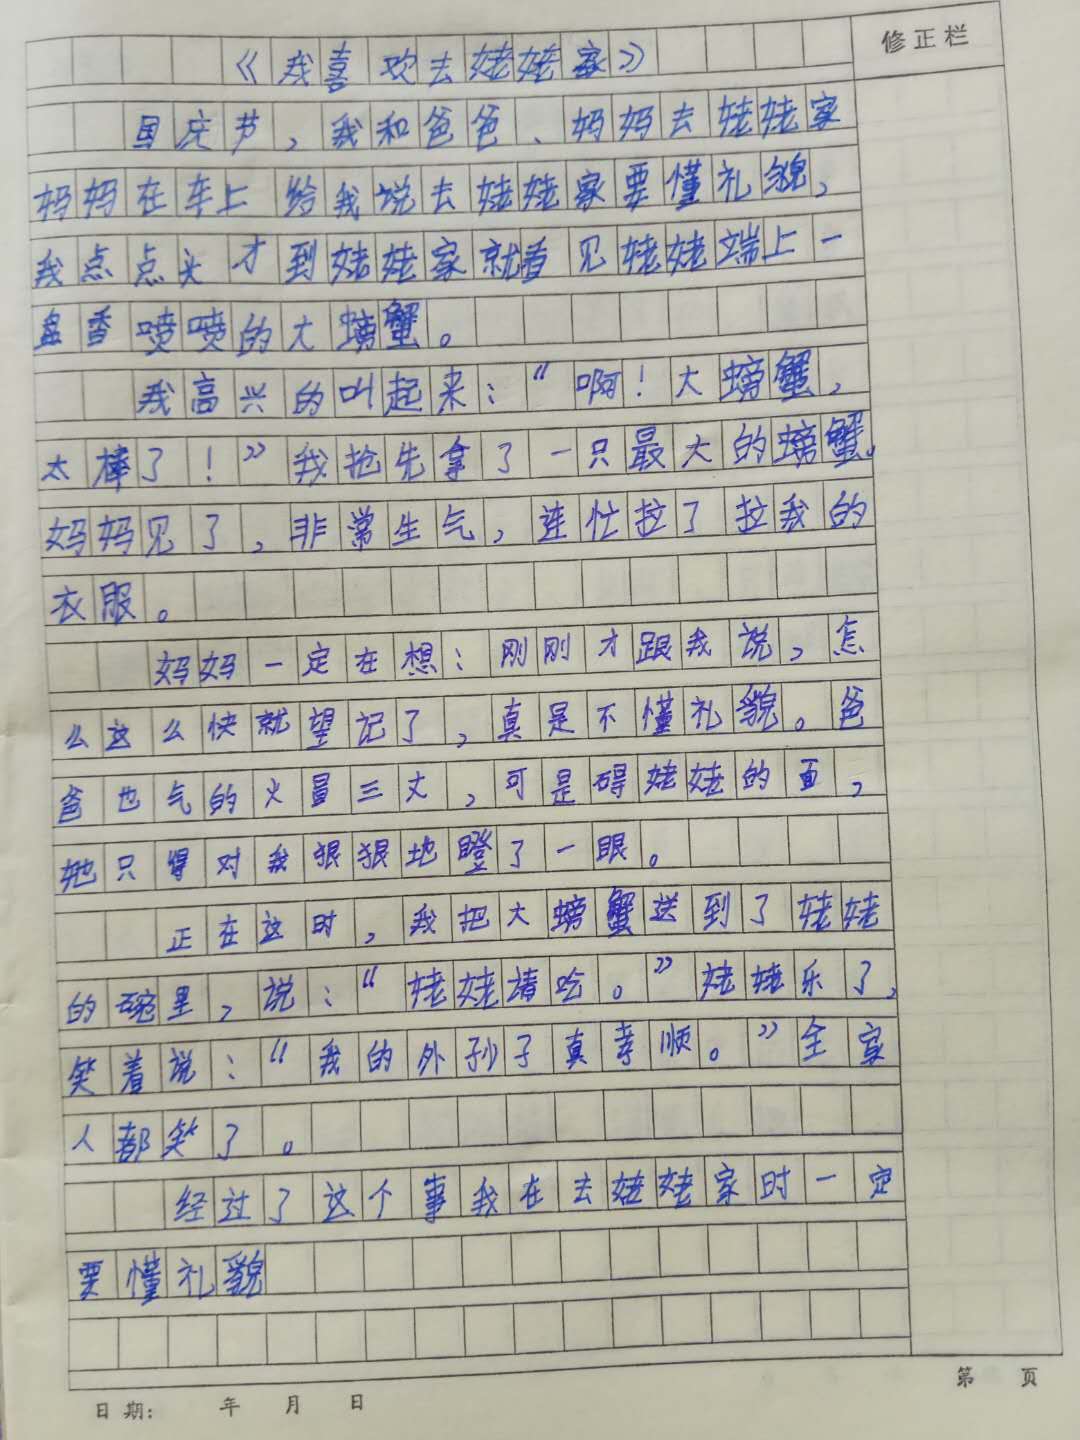 修正栏
《我喜欢去姥姥家》
国庆节,我和爸爸、妈妈去姥姥家
妈妈在车上给我说去姥姥家要懂礼貌,
我点点头才到姥姥家就看见姥姥端上一
盘香喷喷的大螃蟹。
我高兴的叫起来:“啊!大螃蟹,
太棒了!”我抢先拿了一只最大的螃蟹。
妈妈见了,非常生气,连忙拉了拉我的
衣服。
妈妈一定在想:刚刚才跟我说,怎
么这么快就望记了,真是不懂礼貌。爸
爸也气的火冒三丈,可是碍姥姥的面,
她只得对我狠狠地瞪了一眼。
正在这时,我把大螃蟹送到了姥姥
的碗里,说:“姥姥请吃。”姥姥乐了,
笑着说:“我的外孙子真孝顺。”全家
人都笑了。
经过了这个事我在去姥姥家时一定
要懂礼貌
第 页
日期: 年 月 日